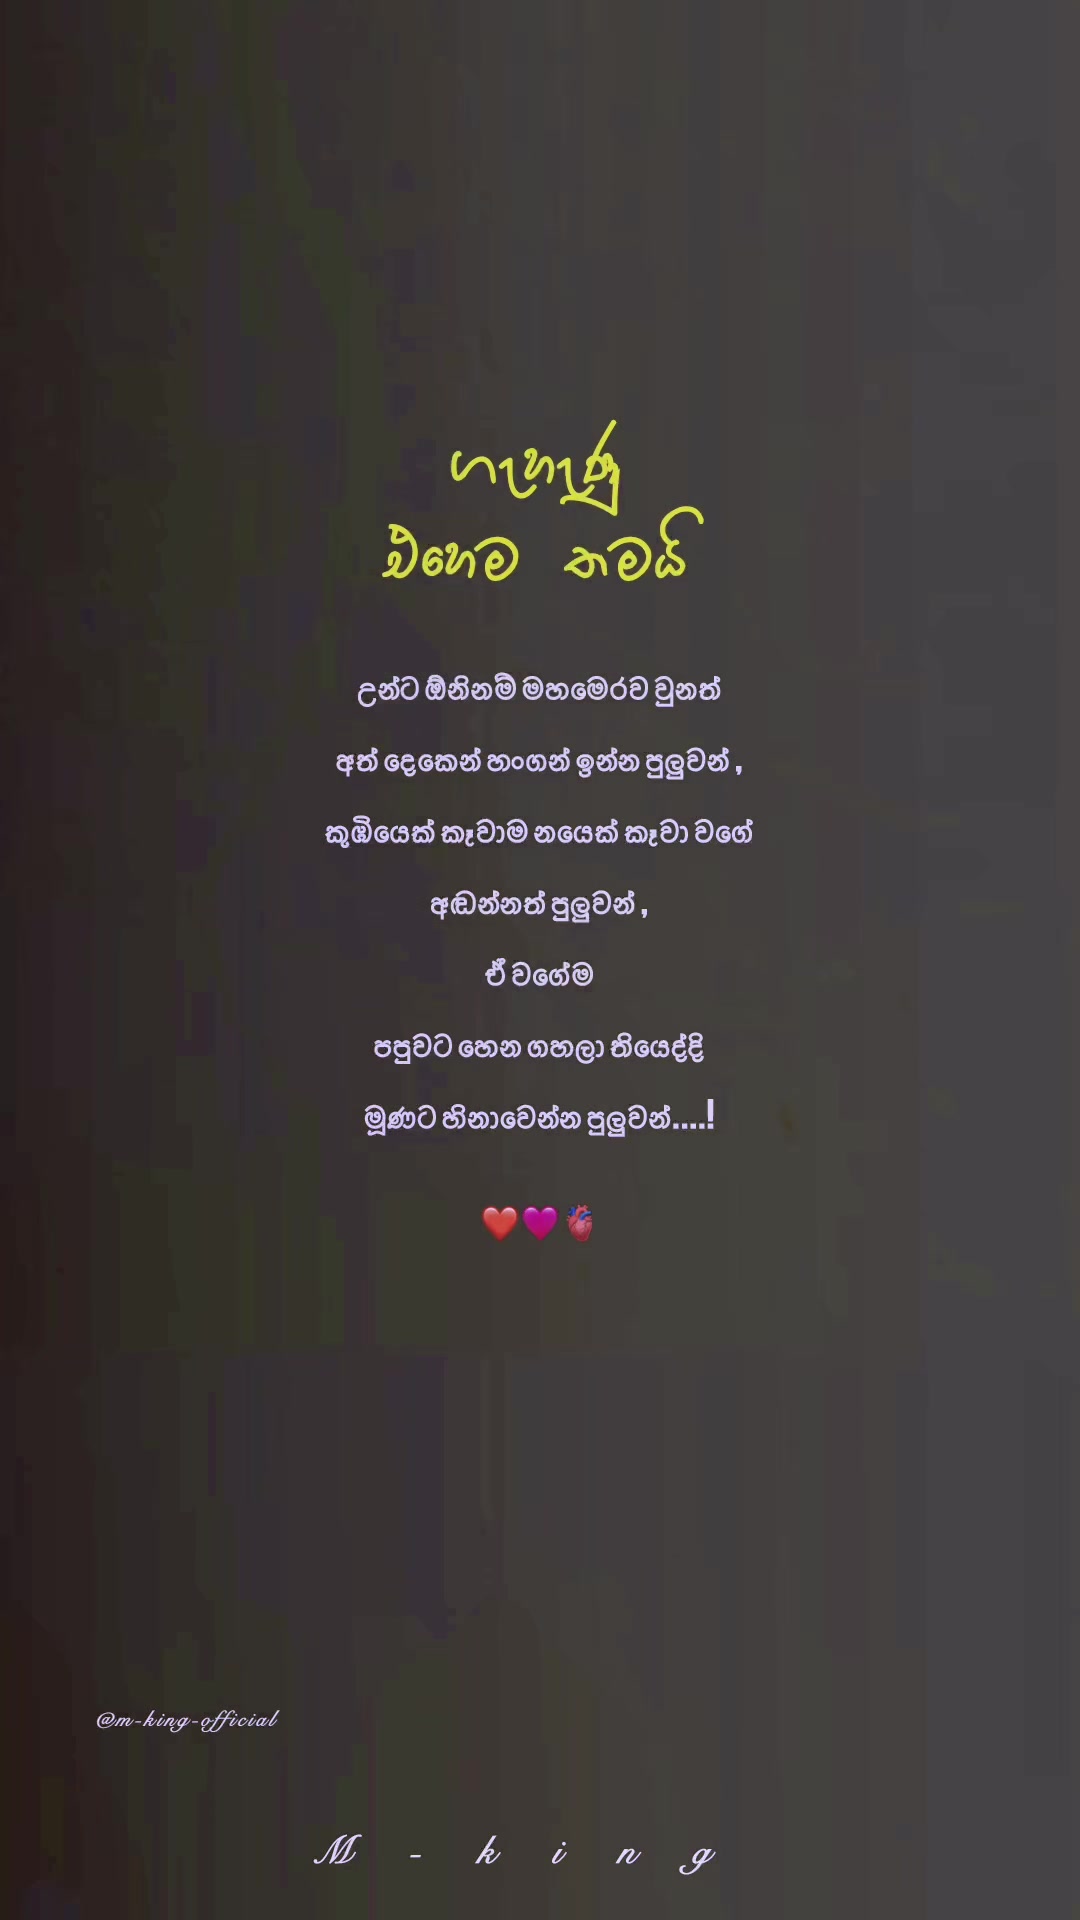 ගැහැණු
එහෙම තමයි
උන්ට ඕනිනම් මහමෙරව වුනත්
අත් දෙකෙන් හංගන් ඉන්න පුලුවන් ,
කුඹියෙක් කෑවාම නයෙක් කෑවා වගේ
අඬන්නත් පුලුවන් ,
ඒ වගේම
පපුවට හෙන ගහලා තියෙද්දි
මූණට හිනාවෙන්න පුලුවන්....!
❤️💜🫀
@m-king-official
M - k i n g